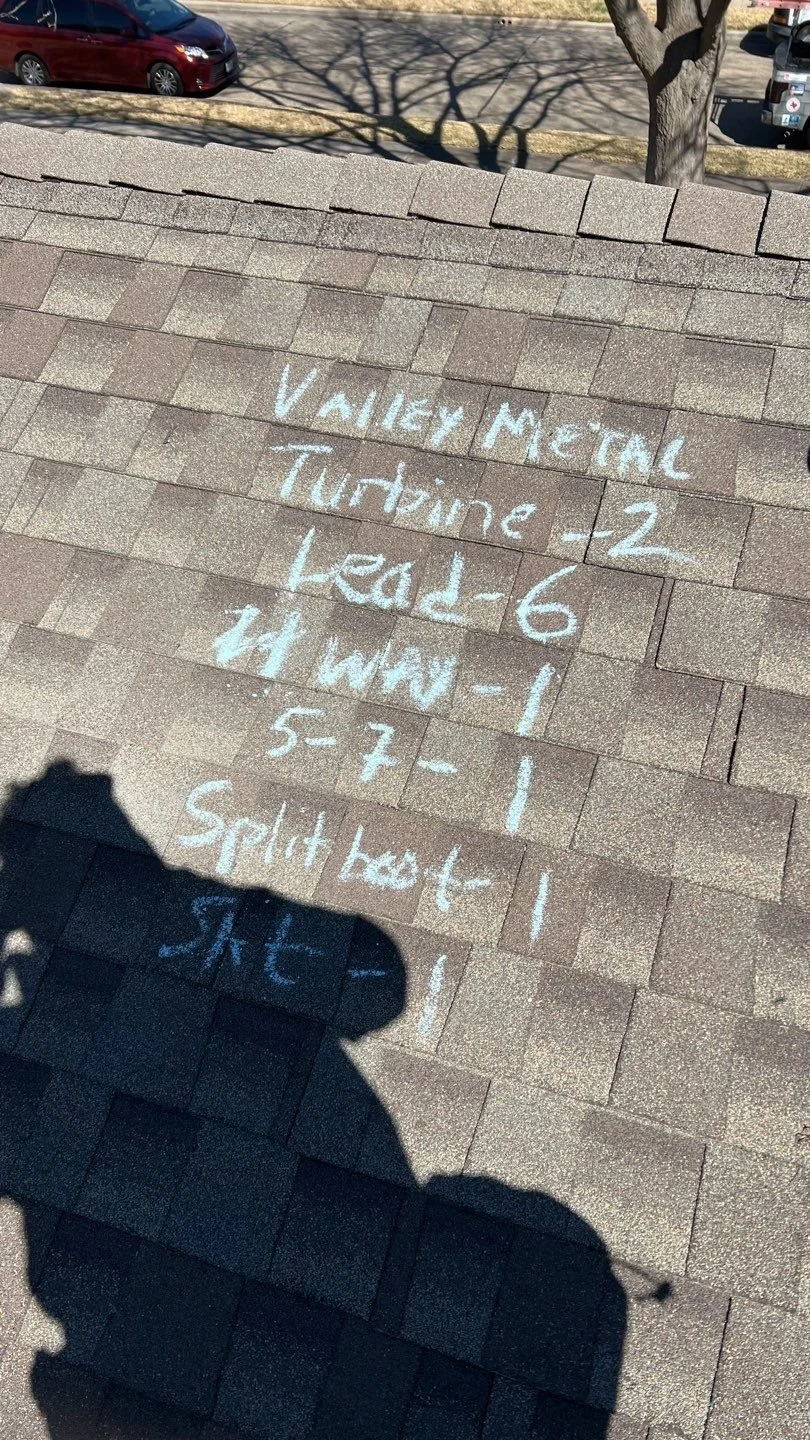 Valley Metal
Turbine - 2
Lead - 6
WAY - 1
5 - 7 - 1
Split boot - 1
- 1